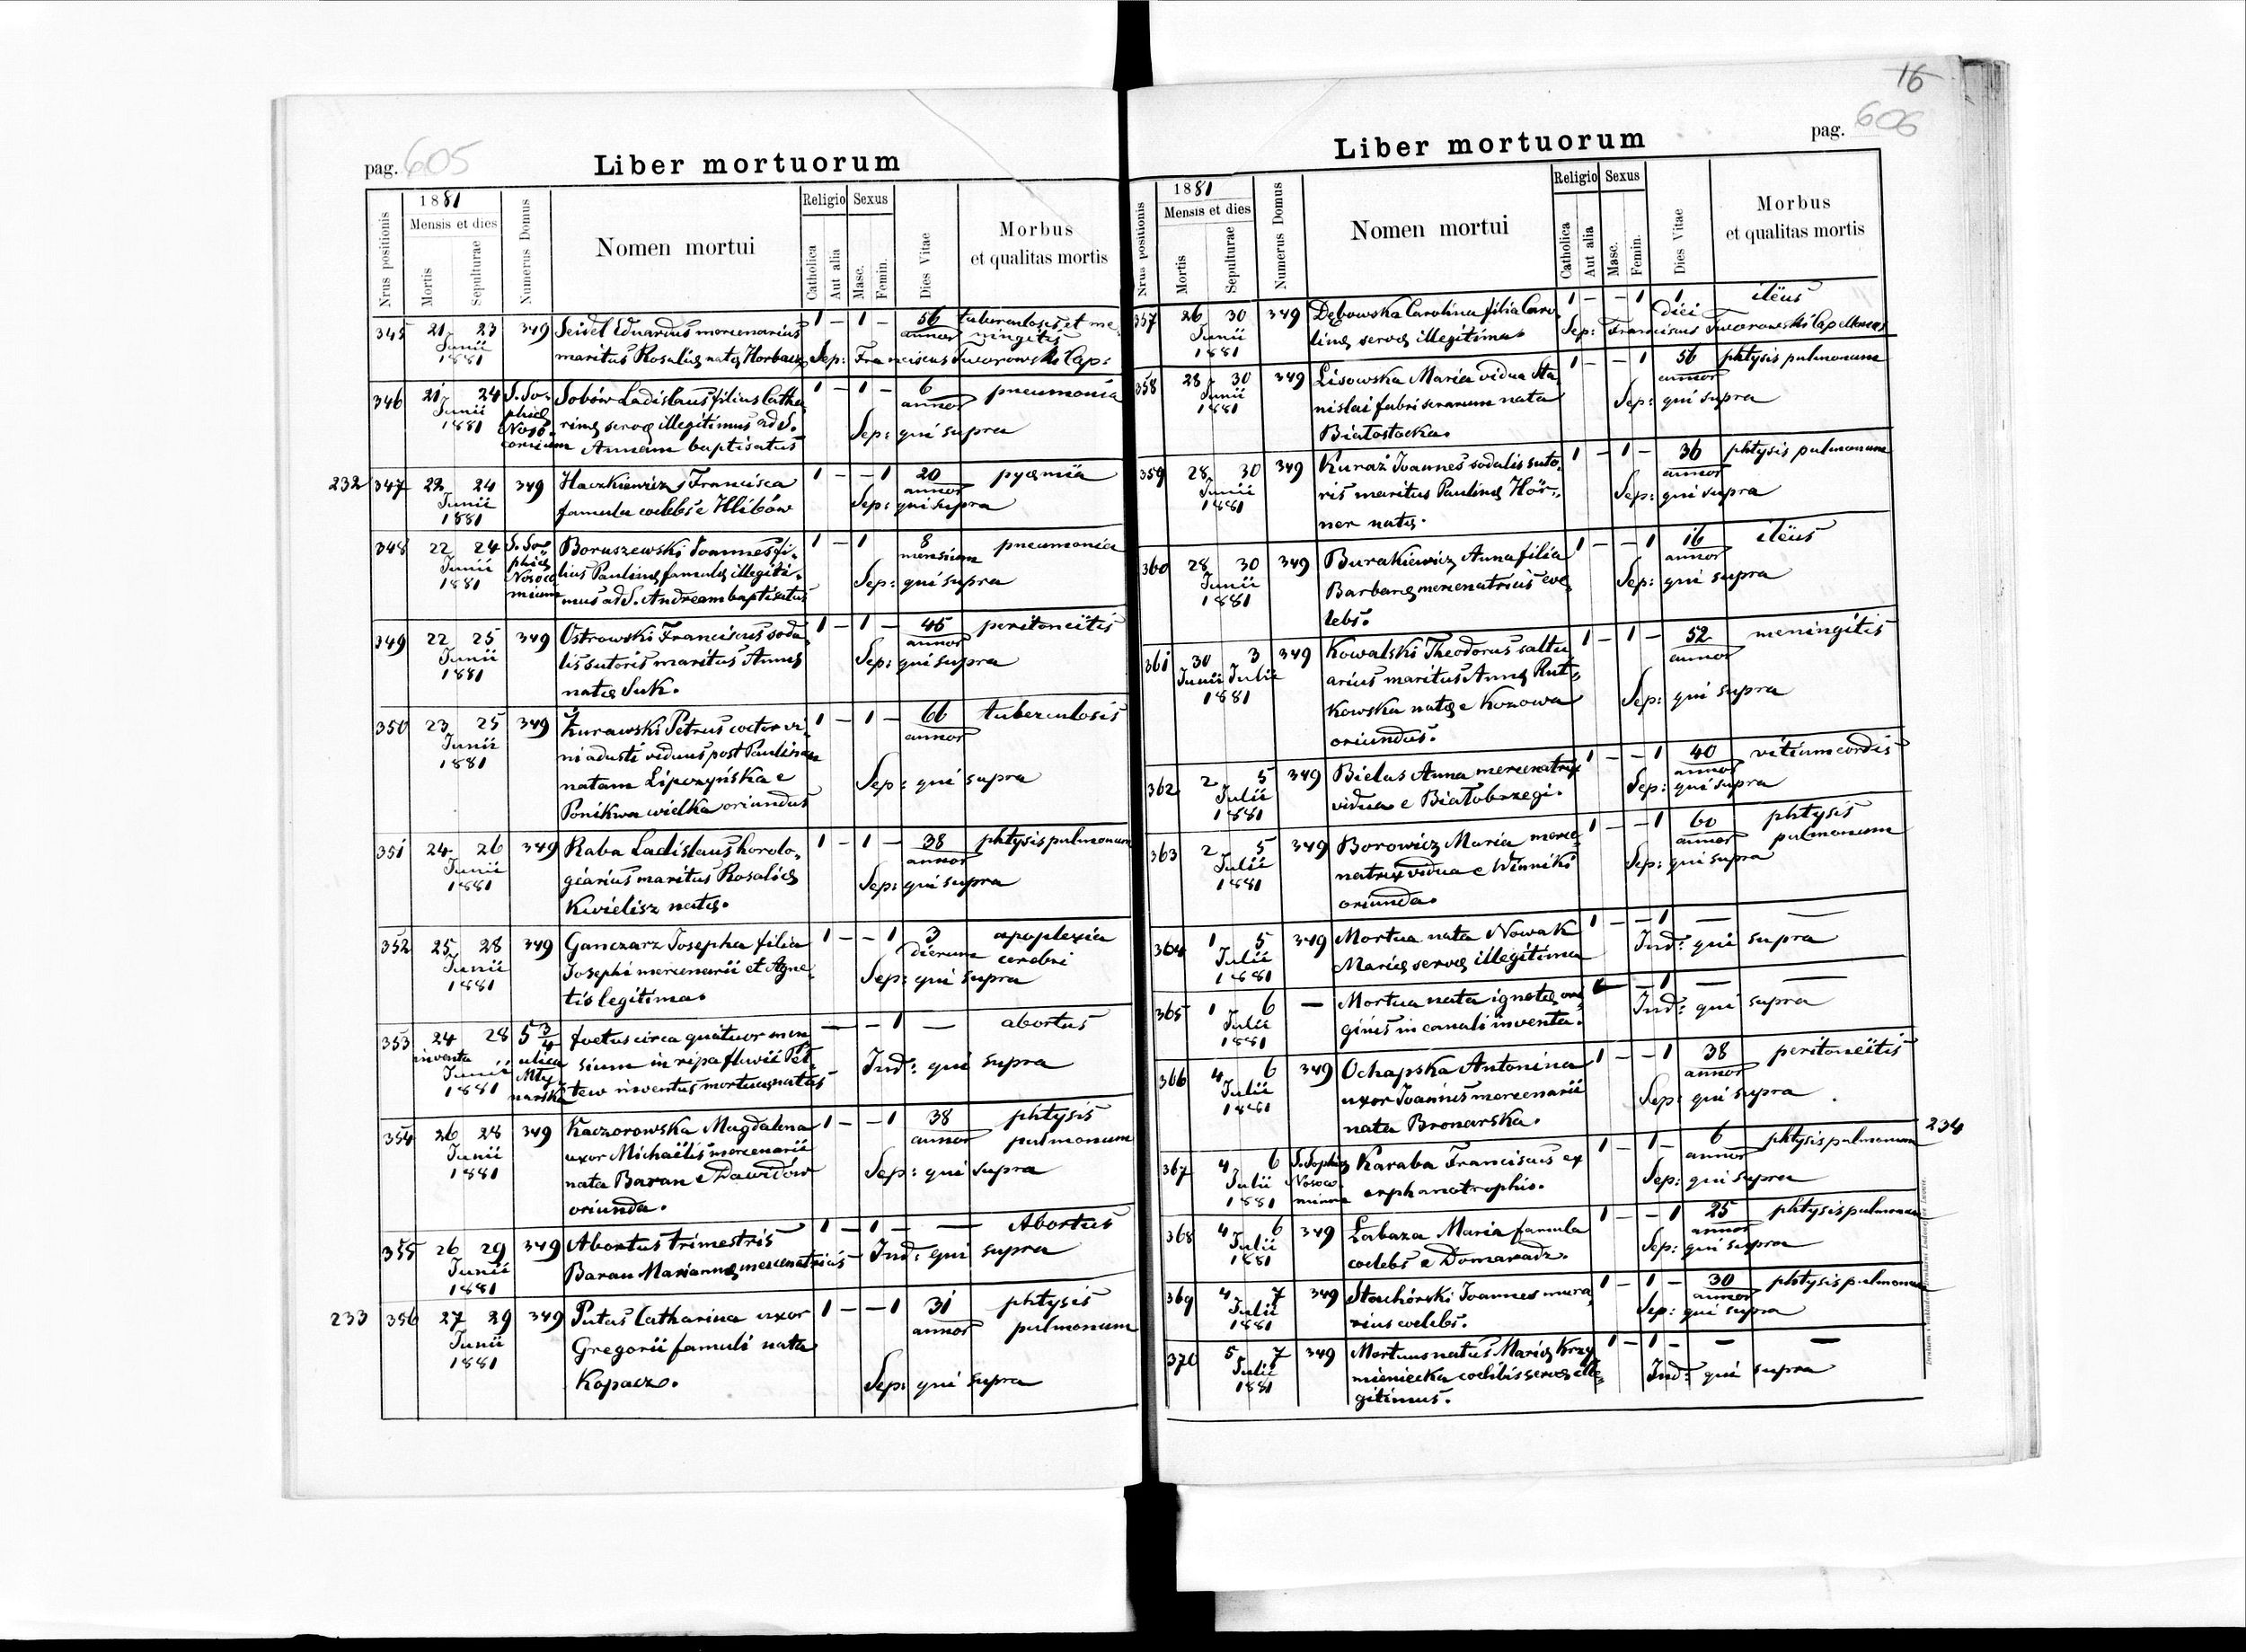 16
pag. 605
Liber mortuorum
1881
Mensis et dies
Nrus positionis
Mortis
Sepulturae
Numerus Domus
Nomen mortui
Religio
Catholica
Aut alia
Sexus
Masc.
Femin.
Dies Vitae
Morbus
et qualitas mortis
345 21 23 349 Seidel Eduardus mercenarius 1 – 1 – 56 tuberculosis et me
Junii annor ningitis
1881 maritus Rosalię natę Horbacz Sep: Franciscus Tworowski Cap:
346 21 24 S. So- Sobów Ladislaus filius Catha 1 – 1 – 6 pneumonia
Junii phię annor
1881 Noso- rinę servę illegitimus ad S. Sep: qui supra
comium Annam baptisatus
232 347 22 24 349 Haczkiewicz Francisca 1 – – 1 20 pyæmia
Junii annor
1881 famula coelebs e Hlibów Sep: qui supra
348 22 24 S. So- Boruszewski Joannes fi- 1 – 1 8 pneumonia
Junii phię mensium
1881 Nosoco lius Paulinę famulę illegiti- Sep: qui supra
mium mus ad S. Andream baptisatus
349 22 25 349 Ostrowski Franciscus soda 1 – 1 – 45 peritoneitis
Junii annor
1881 lis sutoris maritus Annę Sep: qui supra
natę Suk.
350 23 25 349 Żurawski Petrus coctor vi- 1 – 1 – 66 tuberculosis
Junii annor
1881 ni adusti viduus post Paulinam
natam Lipczyńska e Sep: qui supra
Ponikwa wielka oriundus
351 24 26 349 Raba Ladislaus horolo- 1 – 1 – 38 phtysis pulmonum
Junii annor
1881 giarius maritus Rosalię Sep: qui supra
Kwielisz natę.
352 25 28 349 Ganczarz Josepha filia 1 – – 1 3 apoplexia
Junii dierum cerebri
1881 Josephi mercenarii et Agne Sep: qui supra
tis legitima.
353 24 28 5 3/4 foetus circa quatuor men — – 1 — abortus
inventa ulica
Junii Mły- sium in ripa fluvii Peł- Ind: qui supra
1881 narska tew inventus mortuus natus
354 26 28 349 Kaczorowska Magdalena 1 – – 1 38 phtysis
Junii annor pulmonum
1881 uxor Michaëlis mercenarii
nata Baran e Dawidów Sep: qui supra
oriunda.
355 26 29 349 Abortus trimestris 1 – 1 – — Abortus
Junii
1881 Baran Mariannę mercenatricis Ind: qui supra
233 356 27 29 349 Putas Catharina uxor 1 – – 1 31 phtysis
Junii annor pulmonum
1881 Gregorii famuli nata
Kopacz. Sep: qui supra
pag. 606
Liber mortuorum
1881
Mensis et dies
Nrus positionis
Mortis
Sepulturae
Numerus Domus
Nomen mortui
Religio
Catholica
Aut alia
Sexus
Masc.
Femin.
Dies Vitae
Morbus
et qualitas mortis
357 26 30 349 Dębowska Carolina filia Caro 1 – – 1 1 ilëus
Junii diei
1881 linę servę illegitima. Sep: Franciscus Tworowski Capellanus
358 28 30 349 Lisowska Maria vidua Sta 1 – – 1 56 phtysis pulmonum
Junii annor
1881 nislai fabri serarum nata Sep: qui supra
Białostocka.
359 28 30 349 Kuraż Joannes sodalis suto- 1 – 1 – 36 phtysis pulmonum
Junii annor
1881 ris maritus Paulinę Hör- Sep: qui supra
ner natę.
360 28 30 349 Burakiewicz Anna filia 1 – – 1 16 ilëus
Junii annor
1881 Barbarę mercenatricis coe Sep: qui supra
lebs.
361 30 3 349 Kowalski Theodorus saltu 1 – 1 – 52 meningitis
Junii Julii annor
1881 arius maritus Annę Rut-
kowska natę e Kozowa Sep: qui supra
oriundus.
362 2 5 349 Bielas Anna mercenatrix 1 – – 1 40 vitium cordis
Julii annor
1881 vidua e Białobrzegi. Sep: qui supra
363 2 5 349 Borowicz Maria merce 1 – – 1 60 phtysis
Julii annor pulmonum
1881 natrix vidua e Winniki Sep: qui supra
oriunda.
364 1 5 349 Mortua nata Nowak 1 – – 1 — —
Julii
1881 Marię servę illegitima Ind: qui supra
365 1 6 — Mortua nata ignotę ori – 1 — —
Julii
1881 ginis in canali inventa. Ind: qui supra
366 4 6 349 Ochapska Antonina 1 – – 1 38 peritoneitis
Julii annor
1881 uxor Joannis mercenarii Sep: qui supra
nata Bronarska.
367 4 6 S. Sophię Karaba Franciscus ex 1 – 1 – 6 phtysis pulmonum 234
Julii Nosoco annor
1881 mium orphanotrophio. Sep: qui supra
368 4 6 349 Labaza Maria famula 1 – – 1 25 phtysis pulmonum
Julii annor
1881 coelebs e Domaradz. Sep: qui supra
369 4 7 349 Stouhórski Joannes mura 1 – 1 – 30 phtysis pulmonum
Julii annor
1881 rius coelebs. Sep: qui supra
370 5 7 349 Mortuus natus Marię Krzy 1 – 1 – — —
Julii
1881 mieniecka coelibis servę ille- Ind: qui supra
gitimus.